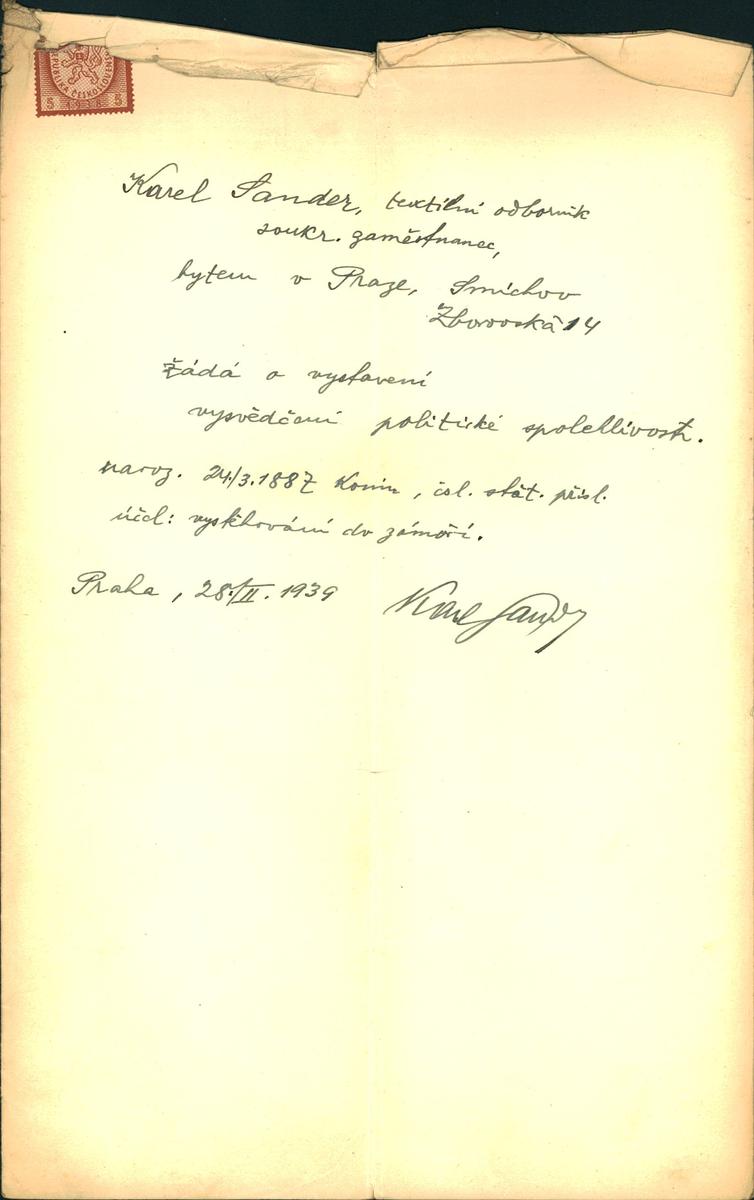 REPUBLIKA ČESKOSLOVENSKÁ
5 5
Karel Sander, textilní odborník
soukr. zaměstnanec,
bytem v Praze, Smíchov
Zborovská 14
Žádá o vystavení
vysvědčení politické spolehlivosti.
naroz. 24./3.1887 Konin, čsl. stát. přísl.
účel: vystěhování do zámoří.
Praha, 28./II. 1939 Karel Sander